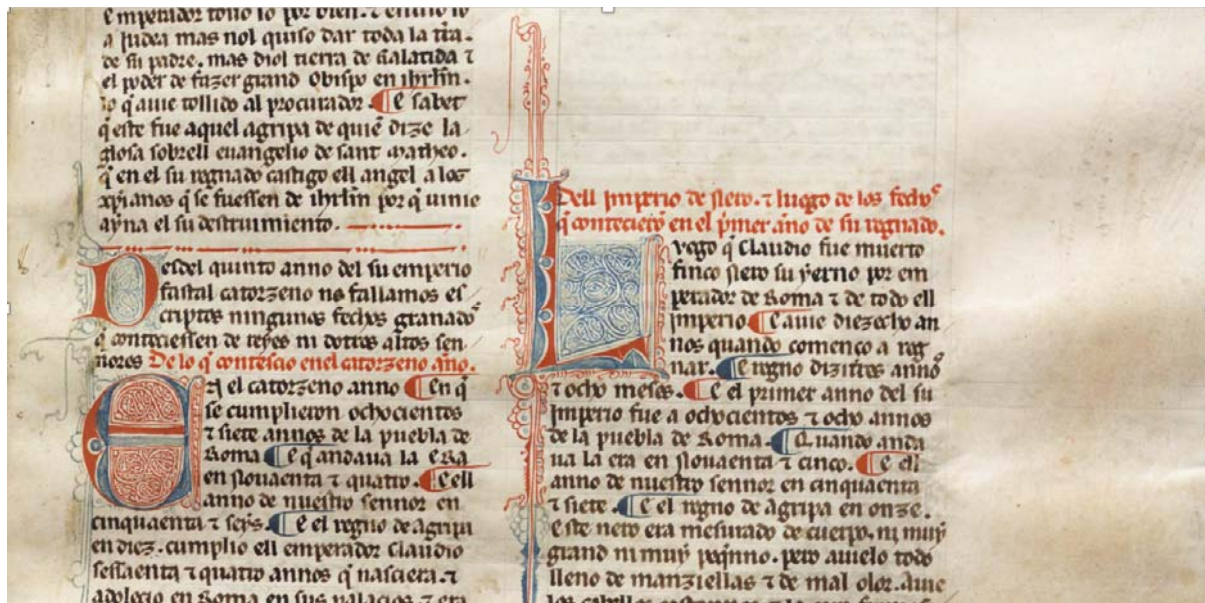 Emperador touo lo por bien. ⁊ enuio lo
a Judea mas nol quiso dar toda la tr̃a.
de su padre. mas diol tierra de Galatida ⁊
el poder de fazer grand Obispo en ihrl̃m.
lo q̃ auie tollido al procurador. ¶ E sabet
q̃ este fue aquel agripa de quiẽ dize la
glosa sobrell euangelio de sant Matheo.
q̃ en el su regnado castigo ell angel a los
xp̃ianos q̃ se fuessen de ihrl̃m por q̃ uinie
ayna el su destruimiento.
Desdel quinto anno del su emperio
fastal catorzeno no fallamos es
criptos ningunos fechos granados
q̃ conteciessen de reyes ni dotros altos sen
nores De lo q̃ contescio enel catorzeno año.
Era el catorzeno anno ¶ En q̃
se cumplieron ochocientos
⁊ siete annos de la puebla de
Roma ¶ E q̃ andaua la Era
en Nouaenta ⁊ quatro. ¶ E ell
anno de nuestro sennor en
cinquaenta ⁊ seys. ¶ E el regno de agripa
en diez. cumplio ell emperador Claudio
sessaenta ⁊ quatro annos q̃ nasciera. ⁊
adolecio en Roma en sus palacios ⁊ era
Dell Imperio de Nero. ⁊ luego de los fechos
q̃ contecierõ en el p̃mer año de su regnado.
Luego q̃ Claudio fue muerto
finco Nero su yerno por em
perador de Roma ⁊ de todo ell
Imperio ¶ E auie diezecho an
nos quando comenco a reg
nar. ¶ E regno dizitres annos
⁊ ocho meses. ¶ E el primer anno del su
Imperio fue a ochocientos ⁊ ocho annos
de la puebla de Roma. ¶ Quando anda
ua la era en Nouaenta ⁊ cinco. ¶ E ell
anno de nuestro sennor en cinquaenta
⁊ siete. ¶ E el regno de agripa en onze.
Este nero era mesurado de cuerpo. ni muy
grand ni muy peq̃nno. pero auielo todo
lleno de manziellas ⁊ de mal olor. Auie
los cabellos